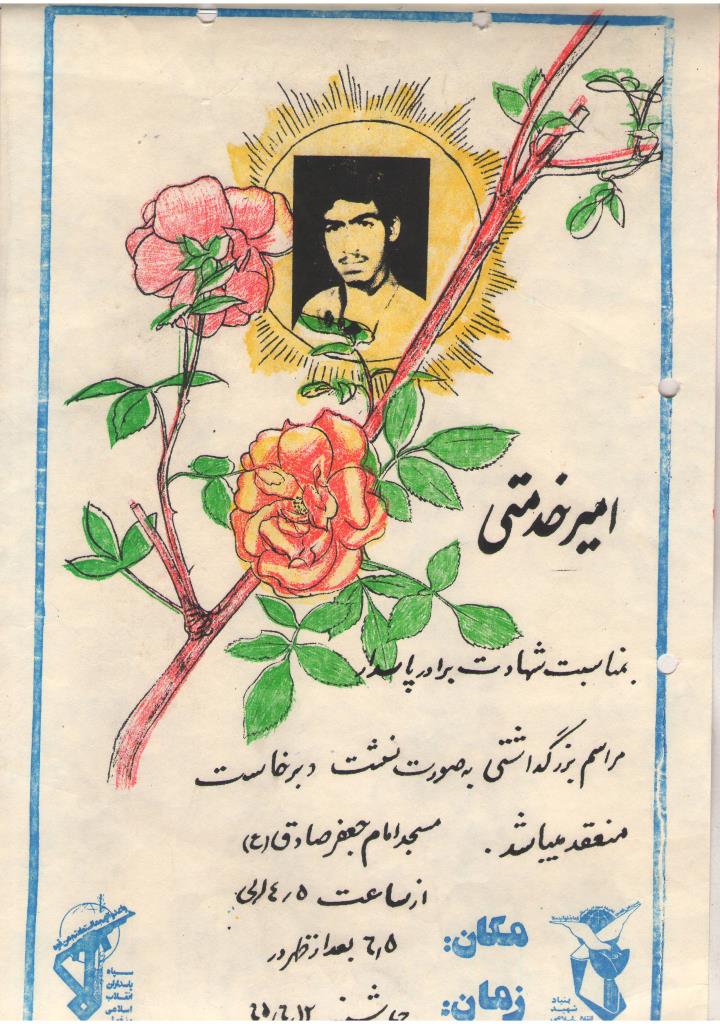 امیر خدمتی
بمناسبت شهادت برادر پاسدار
مراسم بزرگداشتی به صورت نشست و برخاست
منعقد میباشد.
مسجد امام جعفر صادق (ع)
از ساعت ۴٫۵ الی
مکان:
۶٫۵ بعد از ظهر در
زمان:
سپاه
پاسداران
انقلاب
اسلامی
بنیاد
شهید
انقلاب اسلامی